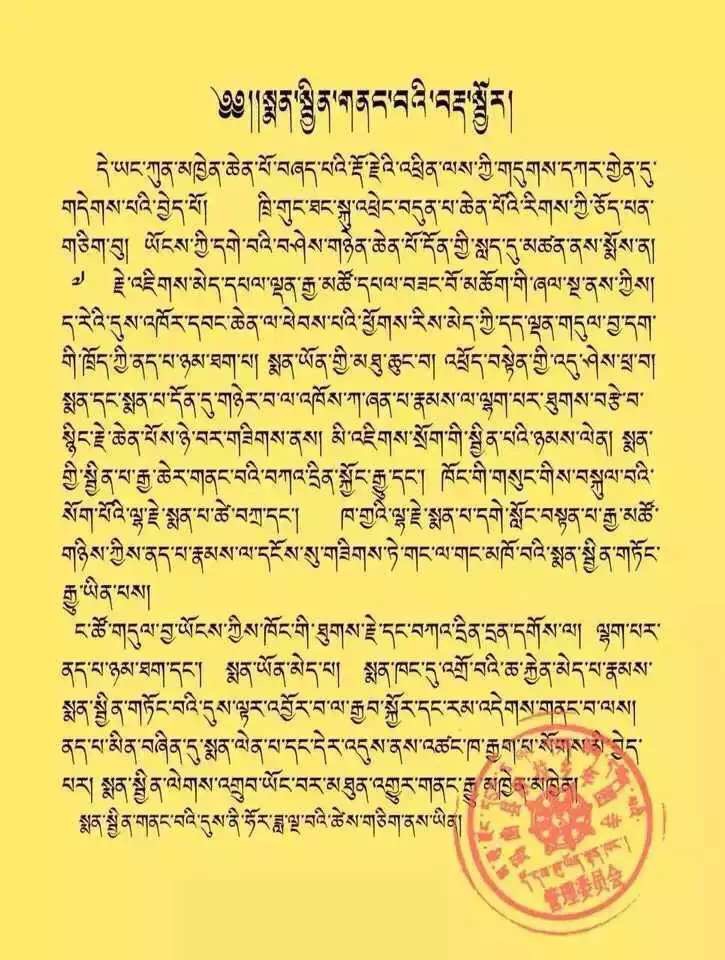 ༄༅།།སྨན་སྦྱིན་གནང་བའི་བརྡ་སྦྱོར།
དེ་ཡང་ཀུན་མཁྱེན་ཆེན་པོ་བཞད་པའི་རྡོ་རྗེའི་འཕྲིན་ལས་ཀྱི་གདུགས་དཀར་གྱེན་དུ་
གདེགས་པའི་བྱེད་པོ། ཁྲི་གུང་ཐང་སྐུ་འཕྲེང་བདུན་པ་ཆེན་པོའི་རིགས་ཀྱི་ཅོད་པན་
གཅིག་བུ། ཡོངས་ཀྱི་དགེ་བའི་བཤེས་གཉེན་ཆེན་པོ་དོན་གྱི་སླད་དུ་མཚན་ནས་སྨོས་ན།
རྗེ་འཇིགས་མེད་དཔལ་ལྡན་རྒྱ་མཚོ་དཔལ་བཟང་པོ་མཆོག་གི་ཞལ་སྔ་ནས་ཀྱིས།
ད་རེའི་དུས་འཁོར་དབང་ཆེན་ལ་ཕེབས་པའི་ཕྱོགས་རིས་མེད་ཀྱི་དད་ལྡན་གདུལ་བྱ་དག་
གི་ཁྲོད་ཀྱི་ནད་པ་ཉམ་ཐག་པ། སྨན་ཡོན་གྱི་མཐུ་ཆུང་བ། འཕྲོད་བསྟེན་གྱི་འདུ་ཤེས་ཕྲ་བ།
སྨན་དང་སྨན་པ་དོན་དུ་གཉེར་བ་ལ་འཁོས་ཀ་ཞན་པ་རྣམས་ལ་ལྷག་པར་ཐུགས་བརྩེ་བ་
སྙིང་རྗེ་ཆེན་པོས་ཉེ་བར་གཟིགས་ནས། མི་འཇིགས་སྲོག་གི་སྦྱིན་པའི་ཉམས་ལེན། སྨན་
གྱི་སྦྱིན་པ་རྒྱ་ཆེར་གནང་བའི་བཀའ་དྲིན་སྐྱོང་རྒྱུ་དང་། ཁོང་གི་གསུང་གིས་བསྐུལ་བའི་
སོག་པོའི་ལྷ་རྗེ་སྨན་པ་ཚེ་བཀྲ་དང་། ཁ་གྱའི་ལྷ་རྗེ་སྨན་པ་དགེ་སློང་བསྟན་པ་རྒྱ་མཚོ་
གཉིས་ཀྱིས་ནད་པ་རྣམས་ལ་དངོས་སུ་གཟིགས་ཏེ་གང་ལ་གང་མཁོ་བའི་སྨན་སྦྱིན་གཏོང་
རྒྱུ་ཡིན་པས།
ང་ཚོ་གདུལ་བྱ་ཡོངས་ཀྱིས་ཁོང་གི་ཐུགས་རྗེ་དང་བཀའ་དྲིན་དྲན་དགོས་ལ། ལྷག་པར་
ནད་པ་ཉམ་ཐག་དང་། སྨན་ཡོན་མེད་པ། སྨན་ཁང་དུ་འགྲོ་བའི་ཆ་རྐྱེན་མེད་པ་རྣམས་
སྨན་སྦྱིན་གཏོང་བའི་དུས་ལྟར་འབྱོར་བ་ལ་རྒྱབ་སྐྱོར་དང་རམ་འདེགས་གནང་བ་ལས།
ནད་པ་མིན་བཞིན་དུ་སྨན་ལེན་པ་དང་དེར་འདུས་ནས་འཚང་ཁ་རྒྱག་པ་སོགས་མི་བྱེད་
པར། སྨན་སྦྱིན་ལེགས་འགྲུབ་ཡོང་བར་མཐུན་འགྱུར་གནང་རྒྱུ་མཁྱེན་མཁྱེན།
སྨན་སྦྱིན་གནང་བའི་དུས་ནི་ཧོར་ཟླ་ལྔ་བའི་ཚེས་གཅིག་ནས་ཡིན།
管理委员会